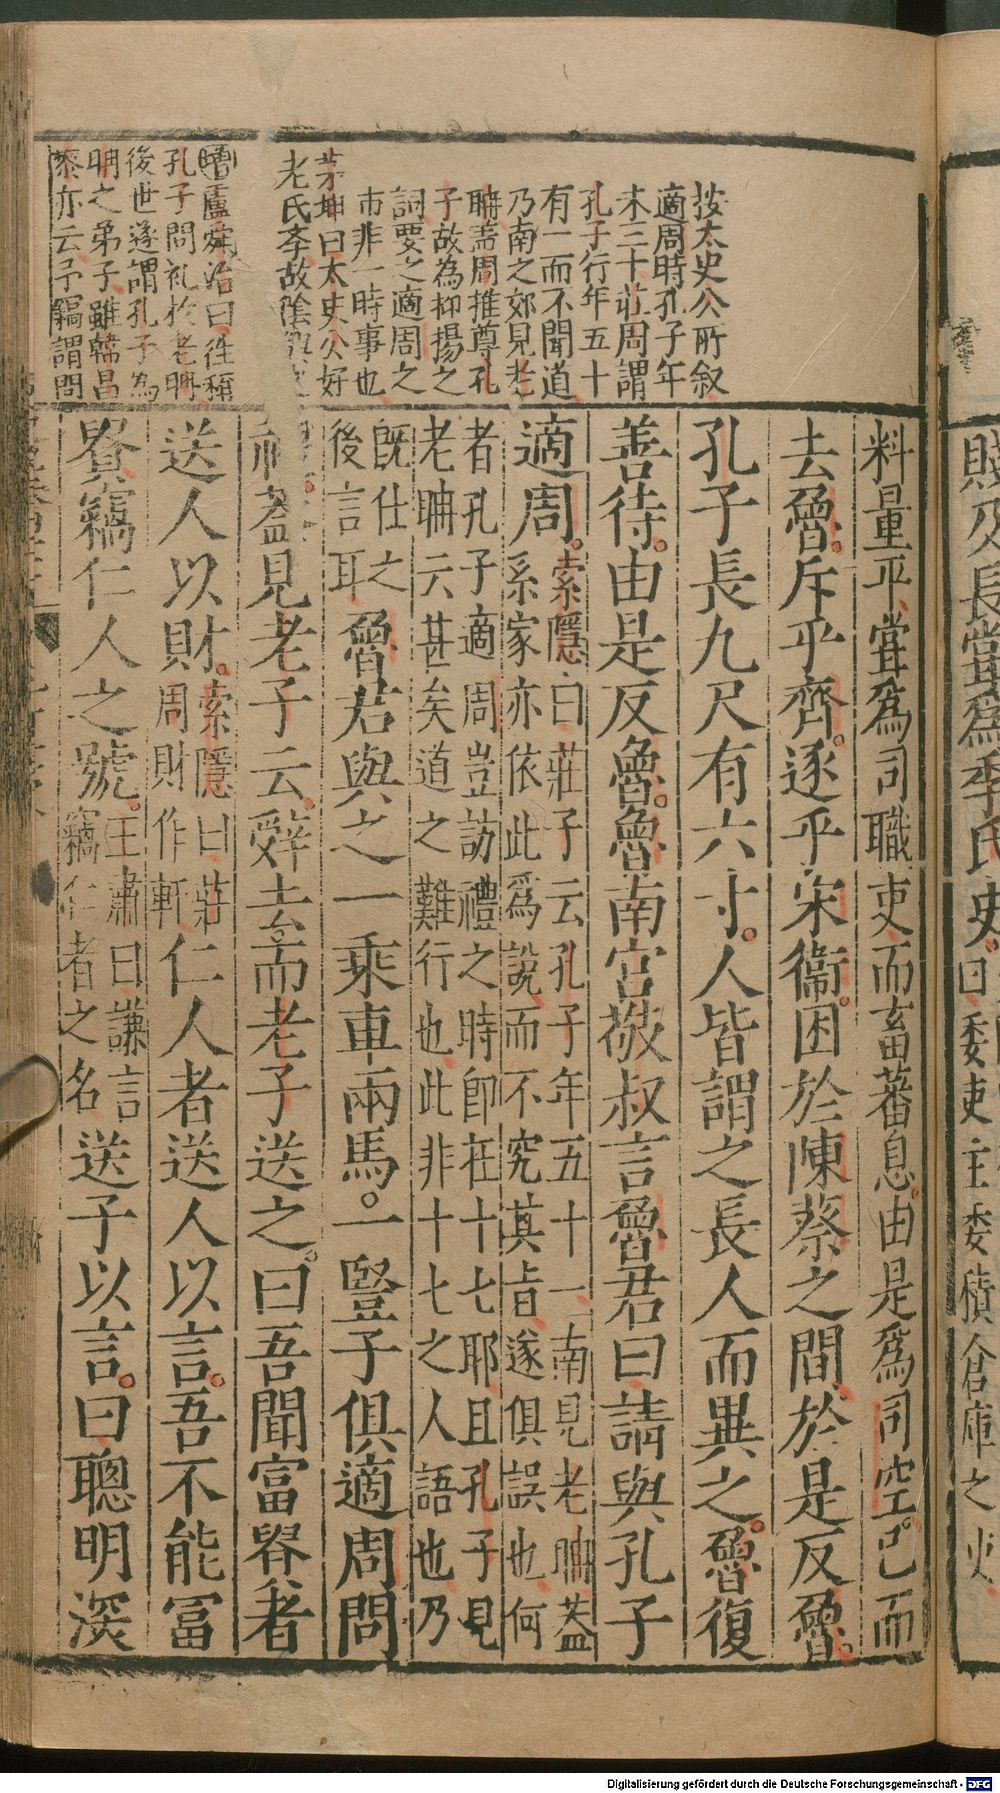 賤及長嘗為季氏史
曰委吏主委積倉庫之吏
料量平嘗為司職吏而畜蕃息由是為司空已而
去魯斥乎齊逐乎宋衞困於陳蔡之間於是反魯
孔子長九尺有六寸人皆謂之長人而異之魯復
善待由是反魯魯南宮敬叔言魯君曰請與孔子
適周
索隱曰莊子云孔子年五十一南見老聃蓋
系家亦依此為說而不究其旨遂俱誤也何
者孔子適周豈訪禮之時即在十七耶且孔子見
老聃云甚矣道之難行也此非十七之人語也乃
既仕之
後言耳
魯君與之一乗車兩馬一豎子俱適周問
禮蓋見老子云辭去而老子送之曰吾聞富貴者
送人以財
索隱曰莊
周財作軒
仁人者送人以言吾不能富
貴竊仁人之號
王肅曰謙言
竊仁者之名
送子以言曰聰明深
按太史公所叙
適周時孔子年
未三十莊周謂
孔子行年五十
有一而不聞道
乃南之郊見老
聃蓋周推尊孔
子故為抑揚之
詞要之適周之
市非一時事也
茅坤曰太史公好
老氏李故陰
盧舜治曰往稱
孔子問礼於老聃
後世遂謂孔子為
聃之弟子雖韓昌
黎亦云予竊謂問
Digitalisierung gefördert durch die Deutsche Forschungsgemeinschaft - DFG